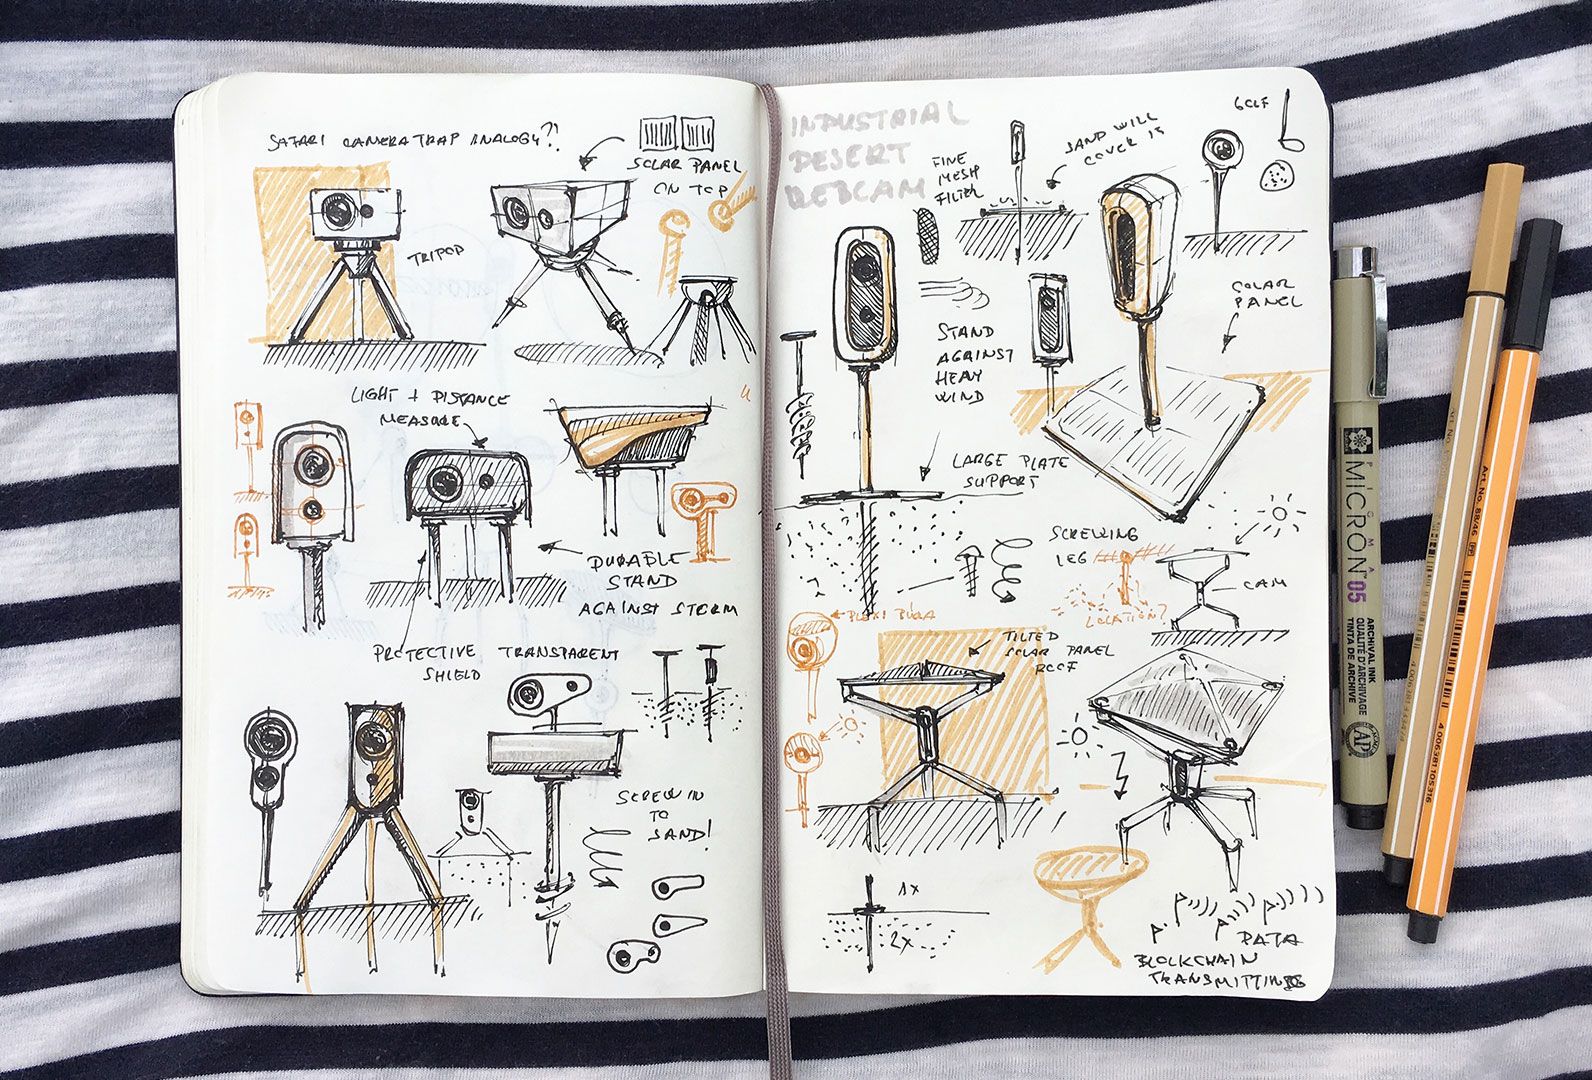 SAFARI CAMERA TRAP ANALOGY?!
SOLAR PANEL
ON TOP
TRIPOD
LIGHT + DISTANCE
MEASURE
DURABLE
STAND
AGAINST STORM
PROTECTIVE TRANSPARENT
SHIELD
SCREW IN
TO
SAND!
INDUSTRIAL
DESERT
WEBCAM
FINE
MESH
FILTER
SAND WILL
COVER IS
GOLF
SOLAR
PANEL
STAND
AGAINST
HEAVY
WIND
LARGE PLATE
SUPPORT
SCREWING
LEG
CAM
LOCATION?
TILTED
SOLAR PANEL
ROOF
1x
2x
DATA
BLOCKCHAIN
TRANSMITTING
PIGMA
MICRON 05
ARCHIVAL INK
QUALITÉ D'ARCHIVAGE
TINTA DE ARCHIVE
AP
Art. No. 88/46
4 006381 105316